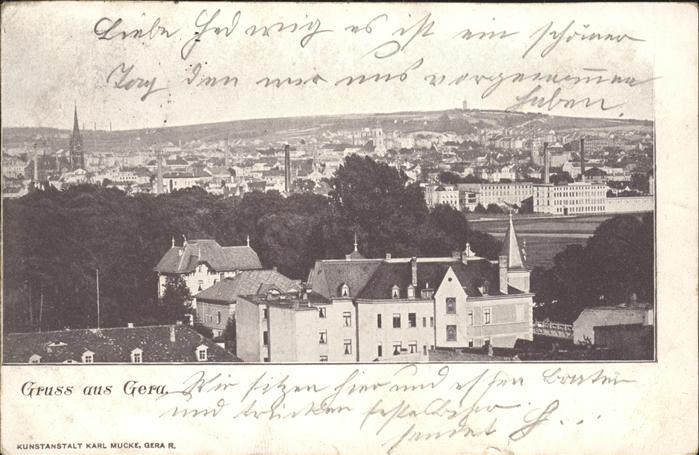 Liebe Hedwig es ist ein schöner
Tag den wir uns vorgenommen
haben.
Gruss aus Gera.
Wir sitzen hier und essen
und trinken
sendet H...
KUNSTANSTALT KARL MUCKE, GERA R.